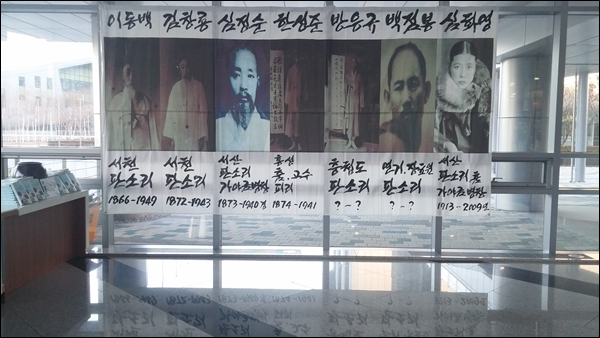 이동백 김창룡 심정순 한성준 방응규 백점봉 심화영
서천
판소리
1866-1949
서천
판소리
1872-1943
서산
판소리
가야금병창
1873-1940경
홍성
춤.고수
피리
1874-1941
충청도
판소리
?~?
연기.
판소리
?-?
서산
판소리.춤
가야금병창
1913-2009년